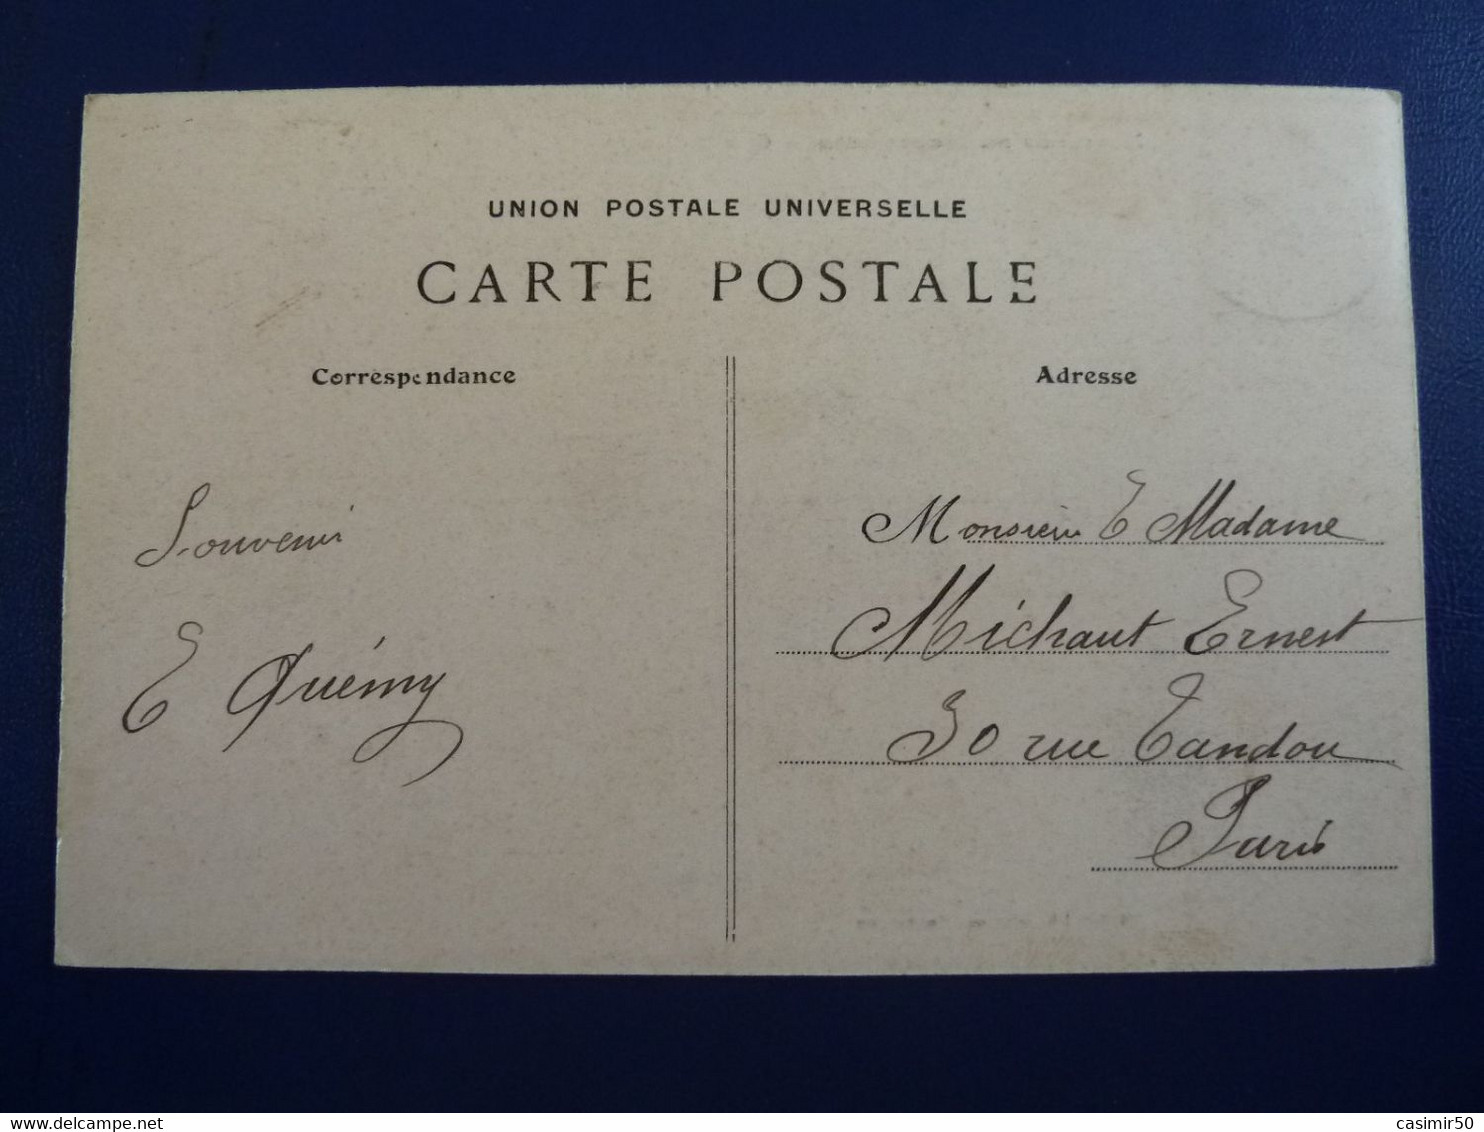 UNION POSTALE UNIVERSELLE
CARTE POSTALE
Correspondance
Adresse
Souvenir
E Quémy
Monsieur E Madame
Michaut Ernest
30 rue Tandou
Paris
delcampe.net
casimir50